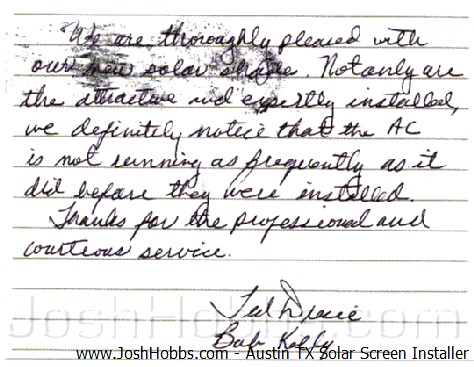 We are thoroughly pleased with
our new solar shades. Not only are
the attractive and expertly installed,
we definitely notice that the AC
is not running as frequently as it
did before they were installed.
Thanks for the professional and
courteous service.
JoshHobbs.com
www.JoshHobbs.com - Austin TX Solar Screen Installer